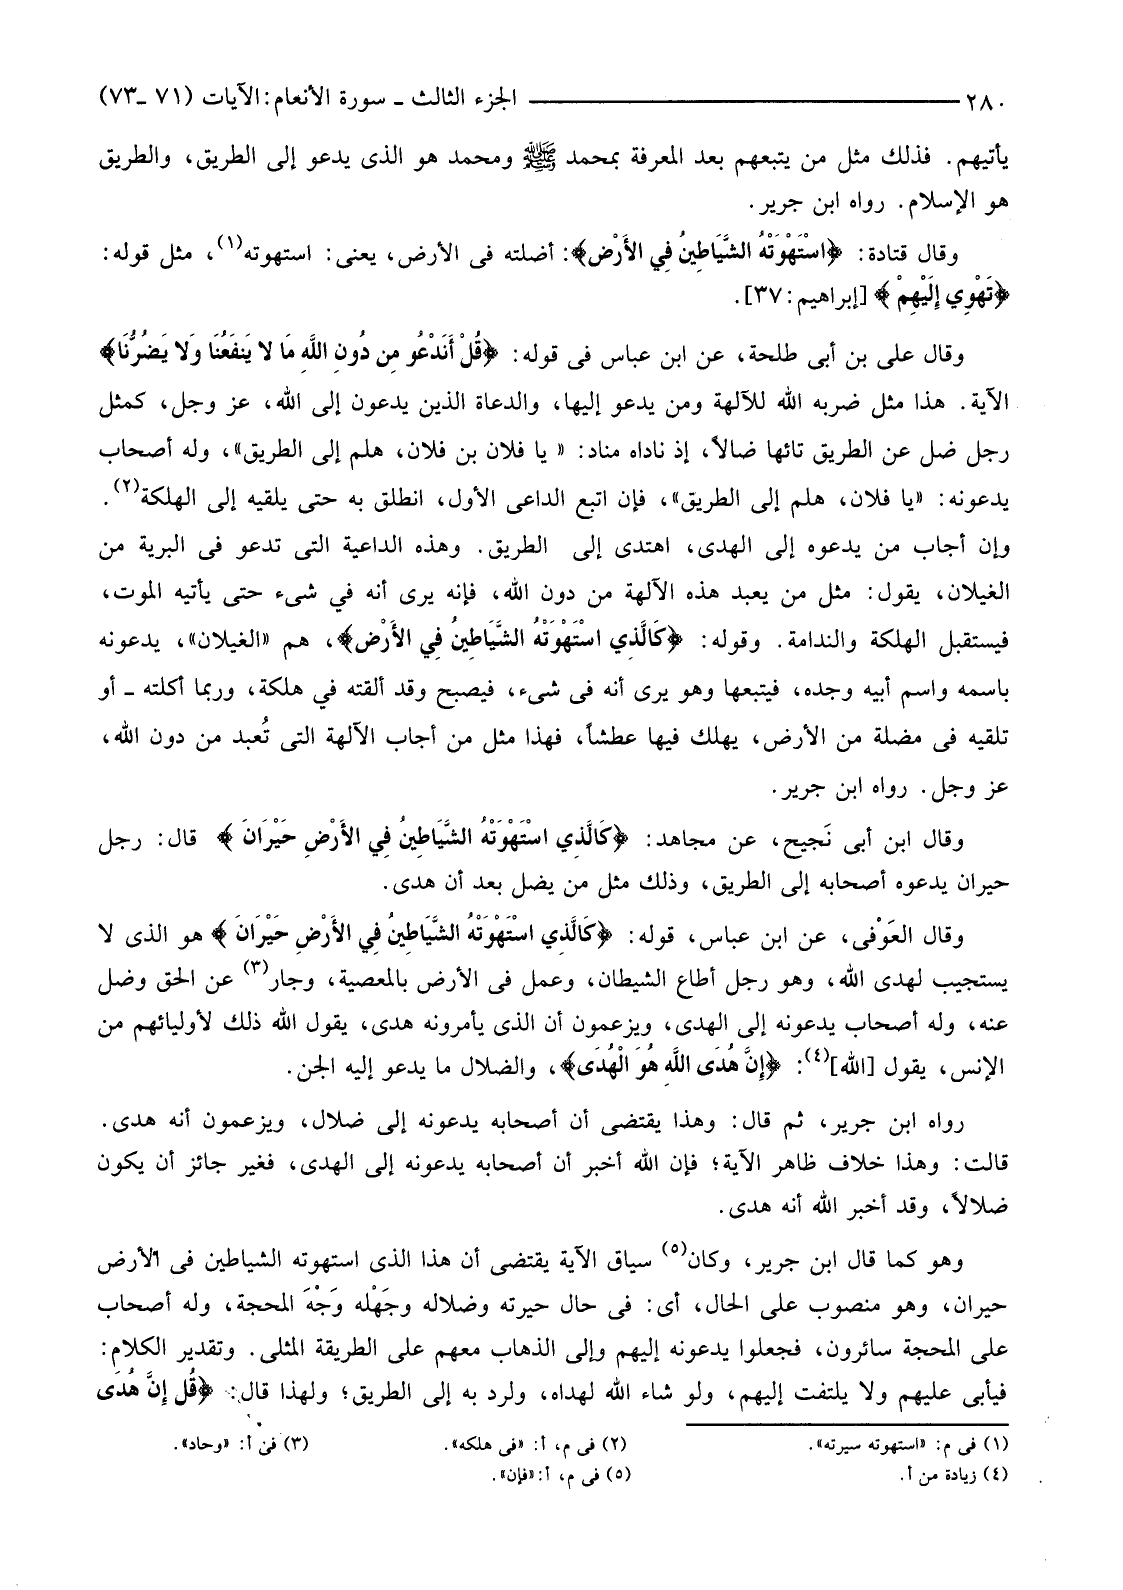 ٢٨٠ ــــــ الجزء الثالث ـ سورة الأنعام: الآيات (٧١ ـ٧٣)
يأتيهم. فذلك مثل من يتبعهم بعد المعرفة بمحمد ﷺ ومحمد هو الذى يدعو إلى الطريق، والطريق
هو الإسلام. رواه ابن جرير.
وقال قتادة: ﴿اسْتَهْوَتْهُ الشَّيَاطِينُ فِي الأَرْضِ﴾: أضلته فى الأرض، يعنى: استهوته(١)، مثل قوله:
﴿تَهْوِي إِلَيْهِمْ ﴾ [إبراهيم: ٣٧].
وقال على بن أبى طلحة، عن ابن عباس فى قوله: ﴿قُلْ أَنَدْعُو مِن دُونِ اللَّهِ مَا لا يَنفَعُنَا وَلا يَضُرُّنَا﴾
الآية. هذا مثل ضربه الله للآلهة ومن يدعو إليها، والدعاة الذين يدعون إلى الله، عز وجل، كمثل
رجل ضل عن الطريق تائها ضالاً، إذ ناداه مناد: « يا فلان بن فلان، هلم إلى الطريق»، وله أصحاب
يدعونه: «يا فلان، هلم إلى الطريق»، فإن اتبع الداعى الأول، انطلق به حتى يلقيه إلى الهلكة(٢).
وإن أجاب من يدعوه إلى الهدى، اهتدى إلى الطريق. وهذه الداعية التى تدعو فى البرية من
الغيلان، يقول: مثل من يعبد هذه الآلهة من دون الله، فإنه يرى أنه في شىء حتى يأتيه الموت،
فيستقبل الهلكة والندامة. وقوله: ﴿كَالَّذِي اسْتَهْوَتْهُ الشَّيَاطِينُ فِي الأَرْضِ﴾، هم «الغيلان»، يدعونه
باسمه واسم أبيه وجده، فيتبعها وهو يرى أنه فى شىء، فيصبح وقد ألقته في هلكة، وربما أكلته ـ أو
تلقيه فى مضلة من الأرض، يهلك فيها عطشاً، فهذا مثل من أجاب الآلهة التى تُعبد من دون الله،
عز وجل. رواه ابن جرير.
وقال ابن أبى نَجيح، عن مجاهد: ﴿كَالَّذِي اسْتَهْوَتْهُ الشَّيَاطِينُ فِي الأَرْضِ حَيْرَانَ ﴾ قال: رجل
حيران يدعوه أصحابه إلى الطريق، وذلك مثل من يضل بعد أن هدى.
وقال العَوْفى، عن ابن عباس، قوله: ﴿كَالَّذِي اسْتَهْوَتْهُ الشَّيَاطِينُ فِي الأَرْضِ حَيْرَانَ ﴾ هو الذى لا
يستجيب لهدى الله، وهو رجل أطاع الشيطان، وعمل فى الأرض بالمعصية، وجار(٣) عن الحق وضل
عنه، وله أصحاب يدعونه إلى الهدى، ويزعمون أن الذى يأمرونه هدى، يقول الله ذلك لأوليائهم من
الإنس، يقول [الله](٤): ﴿إِنَّ هُدَى اللَّهِ هُوَ الْهُدَى﴾، والضلال ما يدعو إليه الجن.
رواه ابن جرير، ثم قال: وهذا يقتضى أن أصحابه يدعونه إلى ضلال، ويزعمون أنه هدى.
قالت: وهذا خلاف ظاهر الآية؛ فإن الله أخبر أن أصحابه يدعونه إلى الهدى، فغير جائز أن يكون
ضلالاً، وقد أخبر الله أنه هدى.
وهو كما قال ابن جرير، وكان(٥) سياق الآية يقتضى أن هذا الذى استهوته الشياطين فى الأرض
حيران، وهو منصوب على الحال، أى: فى حال حيرته وضلاله وجَهْله وَجْهَ المحجة، وله أصحاب
على المحجة سائرون، فجعلوا يدعونه إليهم وإلى الذهاب معهم على الطريقة المثلى. وتقدير الكلام:
فيأبى عليهم ولا يلتفت إليهم، ولو شاء الله لهداه، ولرد به إلى الطريق؛ ولهذا قال: ﴿قُل إِنَّ هُدَى
(١) فى م: «استهوته سيرته». (٢) فى م، أ: «فى هلكه». (٣) فى أ: «وحاد».
(٤) زيادة من أ. (٥) فى م، أ:«فإن».